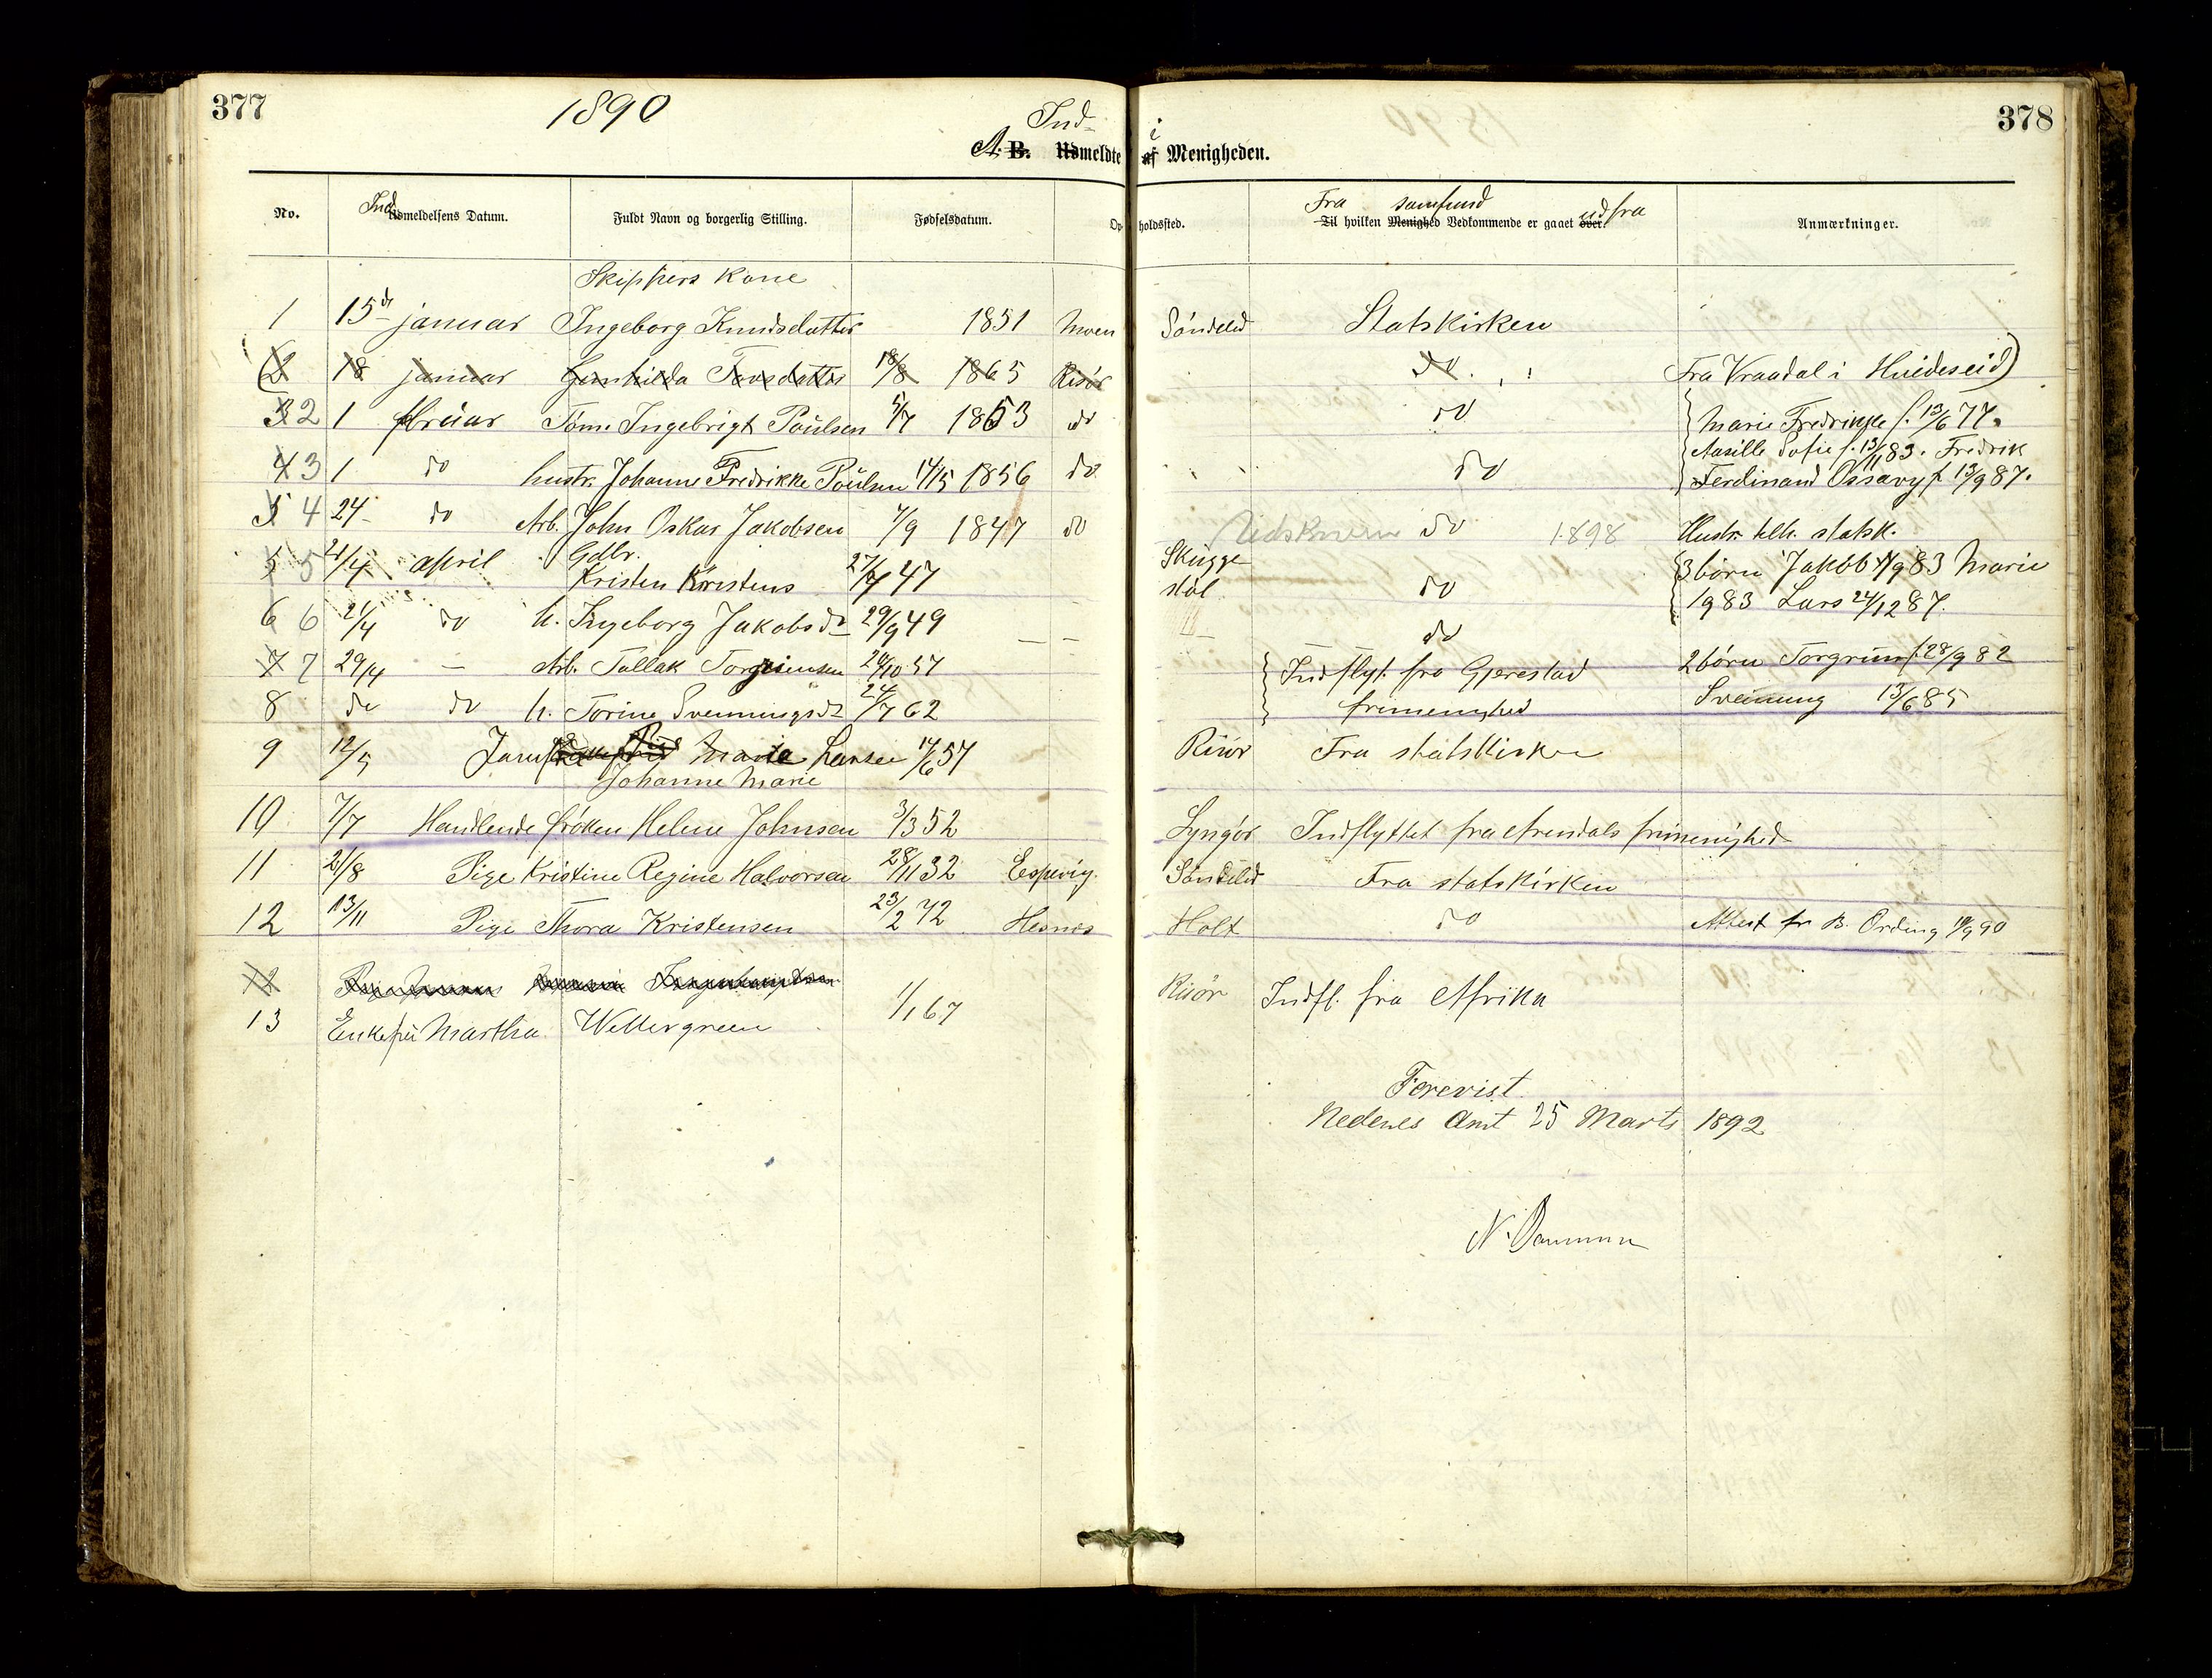 377 1890 378
Ind- i
A. B. Udmeldte af Menigheden.
No. Ind Udmeldelsens Datum. Fuldt Navn og borgerlig Stilling. Fødselsdatum. Opholdssted. Fra samfund Til hvilken Menighed Vedkommende er gaaet over. ud fra Anmærkninger.
Skippers Kone
1 15de januar Ingeborg Knudsdatter 1851 Moen Söndeled Statskirken
(2 18 januar Gunhilda Tovsdatter 18/8 1865 Risör do. Fra Vraadal i Hvideseid)
3 2 1 februar Töm. Ingebrigt Poülsen 5/7 1853 do do Marie Fredrikke f. 13/6 77.
Sofie f. 13/11 83. Fredrik
4 3 1 do hustr. Johanne Fredrikke Poülsen 14/5 1856 do do Ferdinand f. 13/9 87.
5 4 24 do Arb. John Oskar Jakobsen 4/9 1847 do do 1898 Hustr. tilh. statsk.
5 21/4 april Gdbr. Kristen Kristens 27/7 47 Skügge
støl do 3 børn Jakob 4/9 83 Marie
1983 Lars 24/12 87.
6 6 21/4 do h. Ingeborg Jakobsd- 29/9 49 — — do
7 7 29/4 — Arb. Tallak Torgrimsen 28/10 57 Indflyt. fra Gjerestad 2 börn Torgrim f. 28/9 82
8 do do h. Torine Svenningsd- 24/7 62 frimenighed Sveinung 13/6 85
9 12/5 Jomfru Marie Larsen 14/6 57 Risör Fra statskirken
Johanne Marie
10 7/7 Handlende frøken Helene Johnsen 3/3 52 Lyngör Indflyttet fra Arendals frimenighed-
11 21/8 Pige Kristine Regine Halvorsen 28/11 32 Espevig. Söndeled Fra statskirken
12 13/11 Pige Thora Kristensen 23/2 72 Hesnes Holt do Attest fr B. Ording 19/9 90
12
13 Enkefru Martha Wettergreen 1/1 67 Risör Indfl. fra Afrika
Forevist.
Nedenes Amt 25 Marts 1892